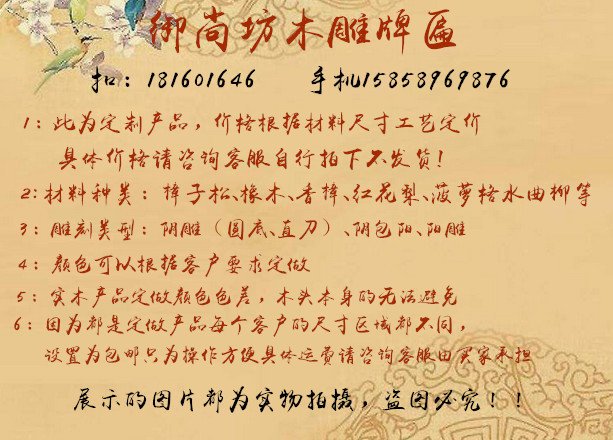 御尚坊木雕牌匾
扣：181601646 手机15858969876
1：此为定制产品，价格根据材料尺寸工艺定价
具体价格请咨询客服自行拍下不发货！
2：材料种类：樟子松、橡木、香樟、红花梨、菠萝格水曲柳等
3：雕刻类型：阴雕（圆底、直刀）、阴包阳、阳雕
4：颜色可以根据客户要求定做
5：实木产品定做颜色色差，木头本身的无法避免
6：因为都是定做产品每个客户的尺寸区域都不同，
设置为包邮只为操作方便具体运费请咨询客服由买家承担
展示的图片都为实物拍摄，盗图必究！！